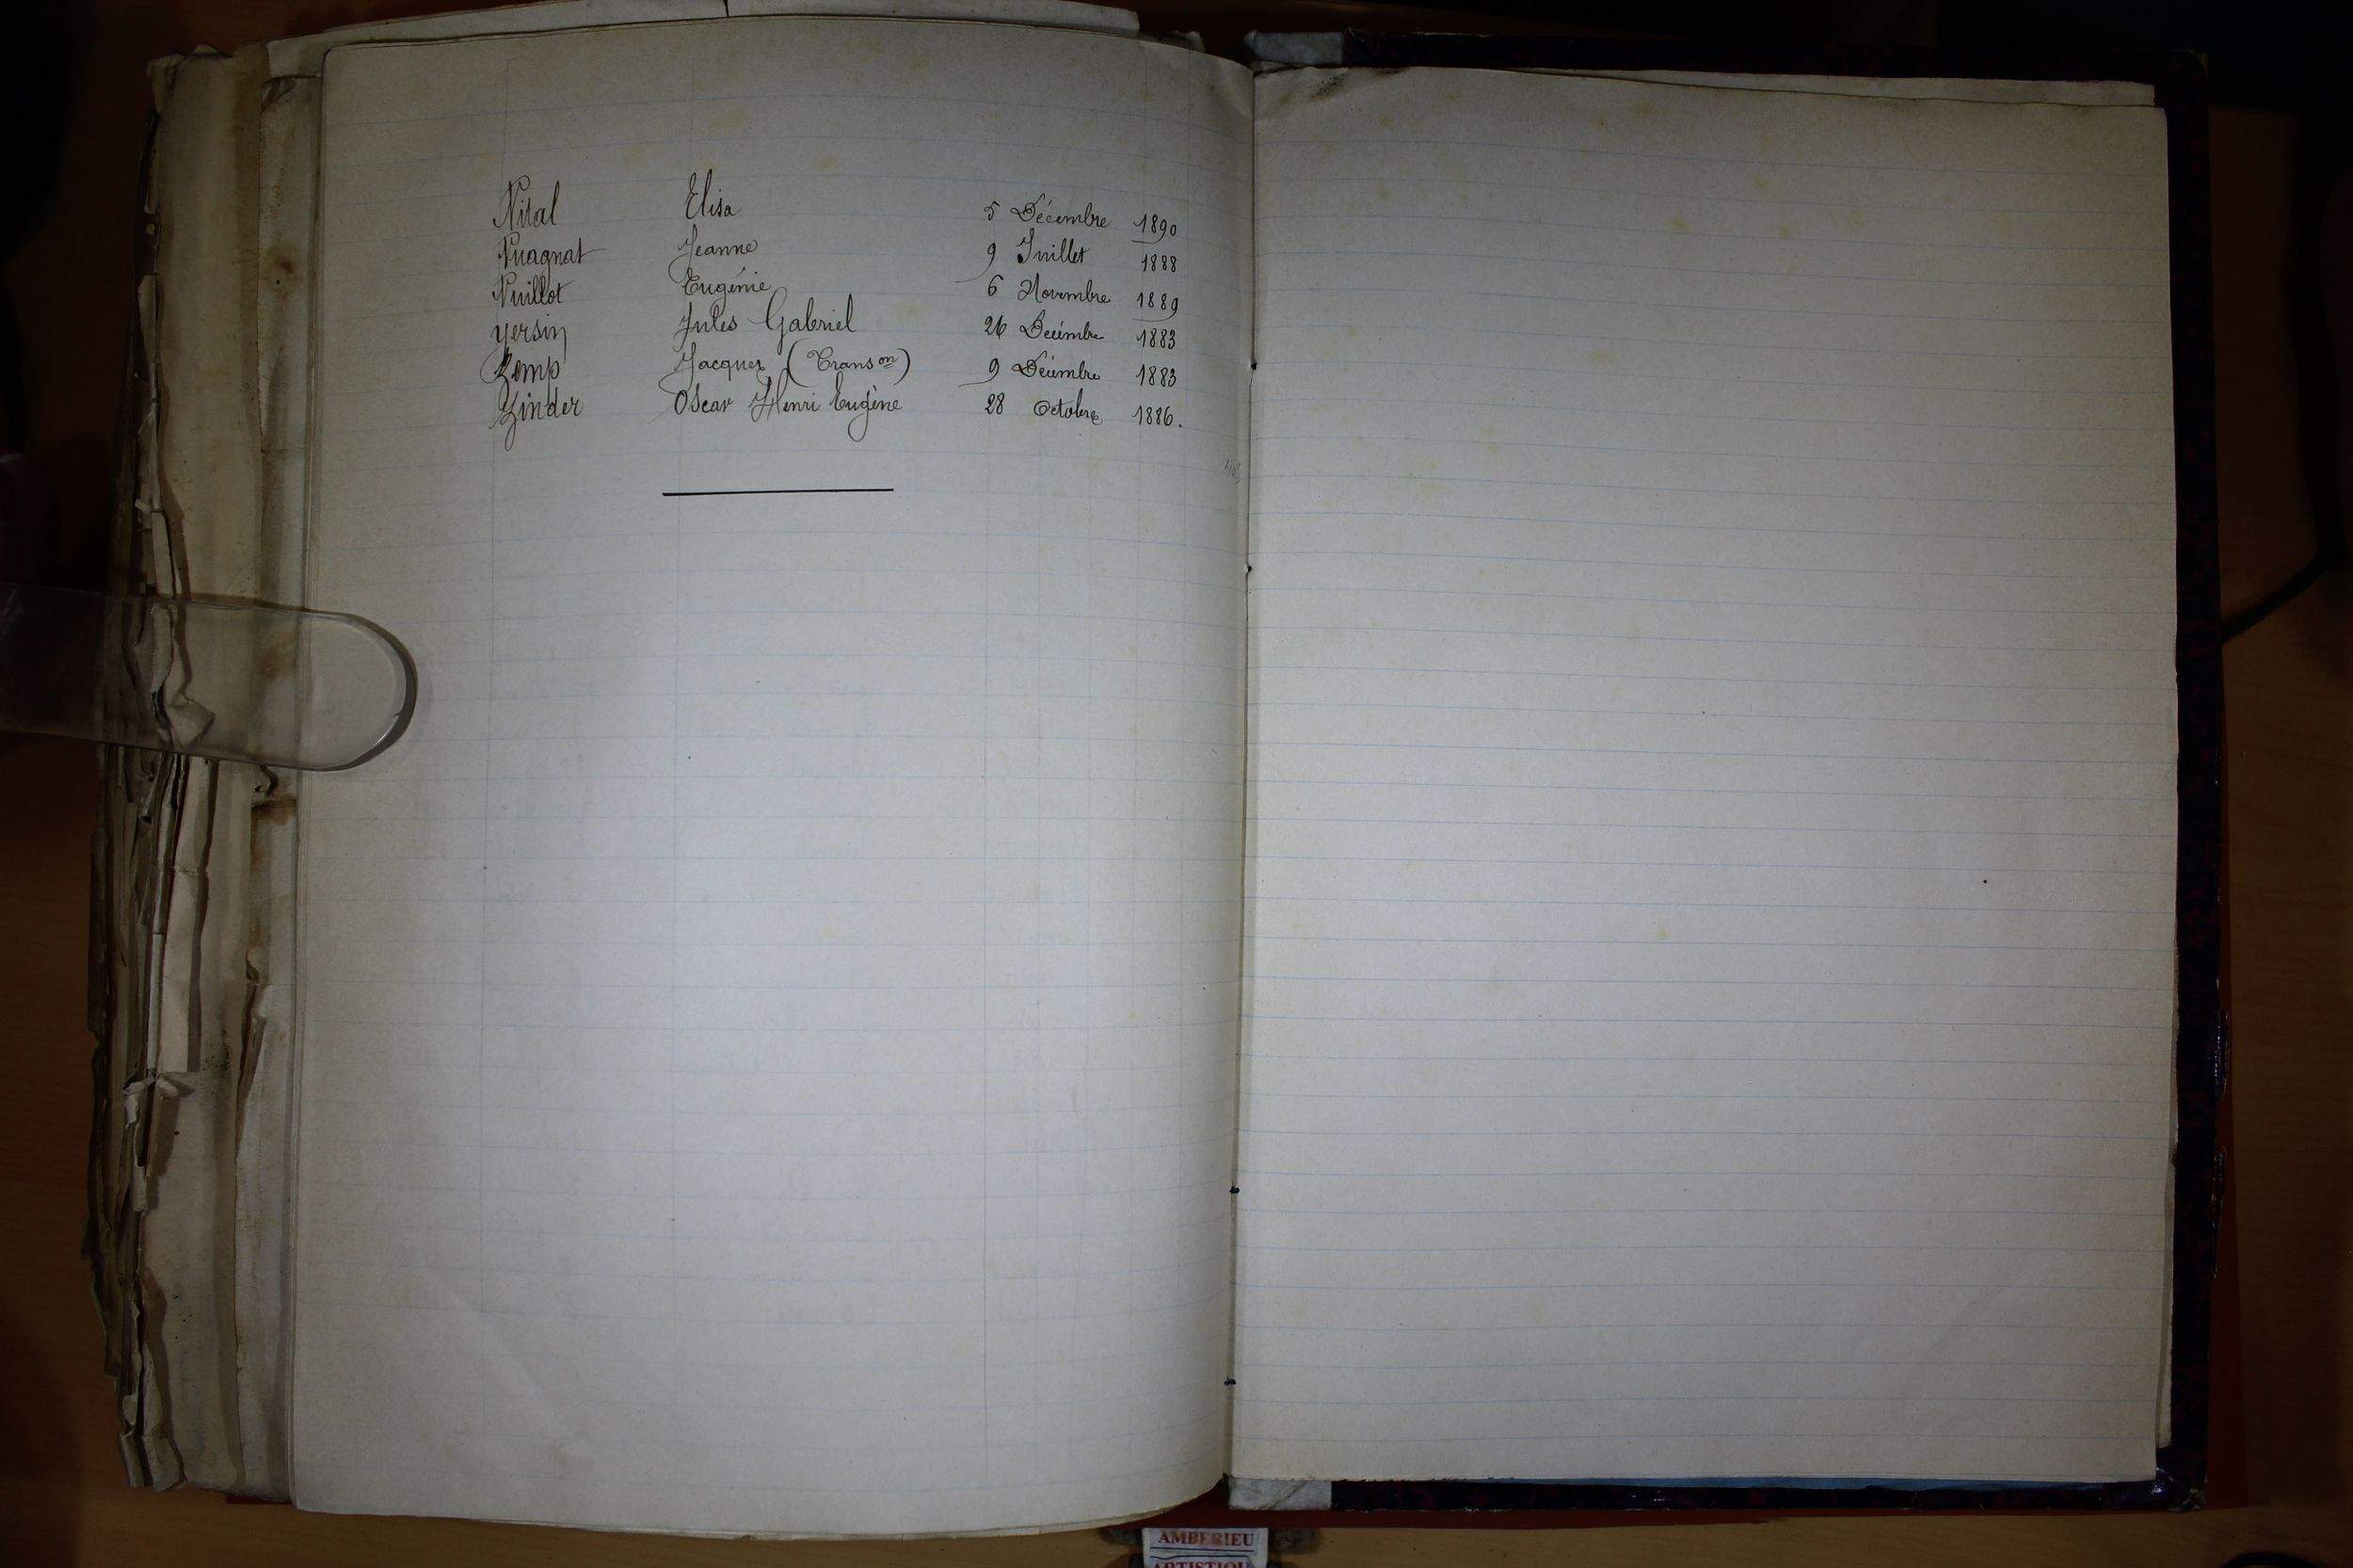 Vital Elisa 5 Décembre 1890
Vuagnat Jeanne 9 Juillet 1888
Vuillot Eugénie 6 Novembre 1889
Yersin Jules Gabriel 26 Décembre 1883
Zemp Jacques (Transon) 9 Décembre 1883
Zinder Oscar Henri Eugène 28 Octobre 1886.
AMBERIEU